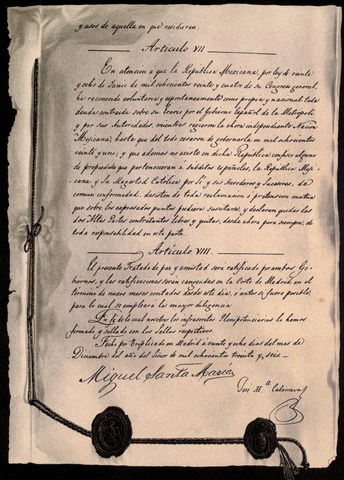 y usos de aquella en que residieren.
Articulo VII
En atencion á que la República Mexicana, por ley de veinte
y ocho de Junio de mil ochocientos veinte y cuatro de su Congreso general,
ha reconocido voluntaria y espontaneamente como propia y nacional toda
deuda contraida sobre su Erario por el Gobierno Español de la Metropoli
y por sus Autoridades, mientras rigieron la ahora independiente Nacion
Mexicana, hasta que del todo cesaron de gobernarla en mil ochocientos
veinte y uno; y que ademas no existe en dicha República confisco alguno
de propiedades que pertenecieran á Subditos españoles, la República Mexi-
cana, y Su Magestad Católica por Sí y sus Herederos y Sucesores, de
comun conformidad desisten de toda reclamacion ó pretension mutua
que sobre los expresados puntos pudiera suscitarse, y declaran quedar las
dos Altas Partes contratantes libres y quitas, desde ahora para siempre, de
toda responsabilidad en esta parte.
Articulo VIII.
El presente Tratado de paz y amistad será ratificado por ambos Go-
biernos, y las ratificaciones serán cangeadas en la Corte de Madrid en el
termino de nueve meses contados desde este dia, ó antes si fuere posible,
para lo cual se empleará la mayor diligencia.
En fé de lo cual nosotros los infrascritos Plenipotenciarios lo hemos
firmado y sellado con los Sellos respectivos.
Fecho por triplicado en Madrid á veinte y ocho dias del mes de
Diciembre del año del Señor de mil ochocientos treinta y seis
Miguel Santa María
José M.ª Calatrava